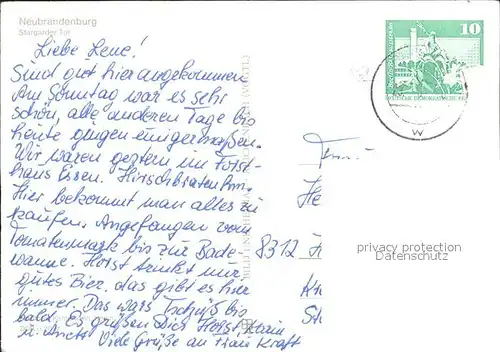 Neubrandenburg
Stargarder Tor
10
DEUTSCHE DEMOKRATISCHE
W
Liebe Lene!
Sind gut hier angekommen
Am Sonntag war es sehr
schön, alle anderen Tage bis
heute gingen einigermaßen.
Wir waren gestern im Forst-
haus Essen. Hirschbraten
Hier bekommt man alles zu
kaufen. Angefangen vom
Tomatenmark bis zur Bade-
wanne. Horst trinkt nur
gutes Bier, das gibt es hier
immer. Das wars Tschüß bis
bald. Es grüßen Dich Horst, Karin
u. Anett Viele Grüße an Frau Kraft
8312
privacy protection
Datenschutz